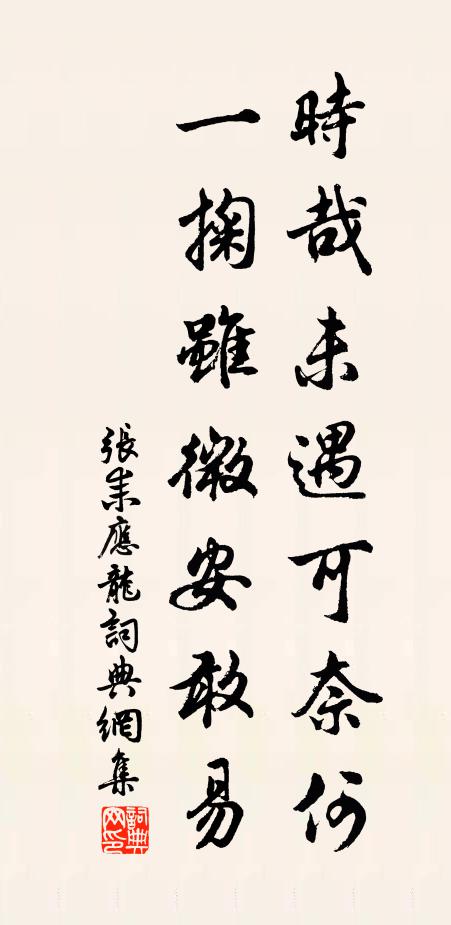 時哉未遇可奈何
一掬雖微安敢易
張耒應龍詞典網集
詞典網印